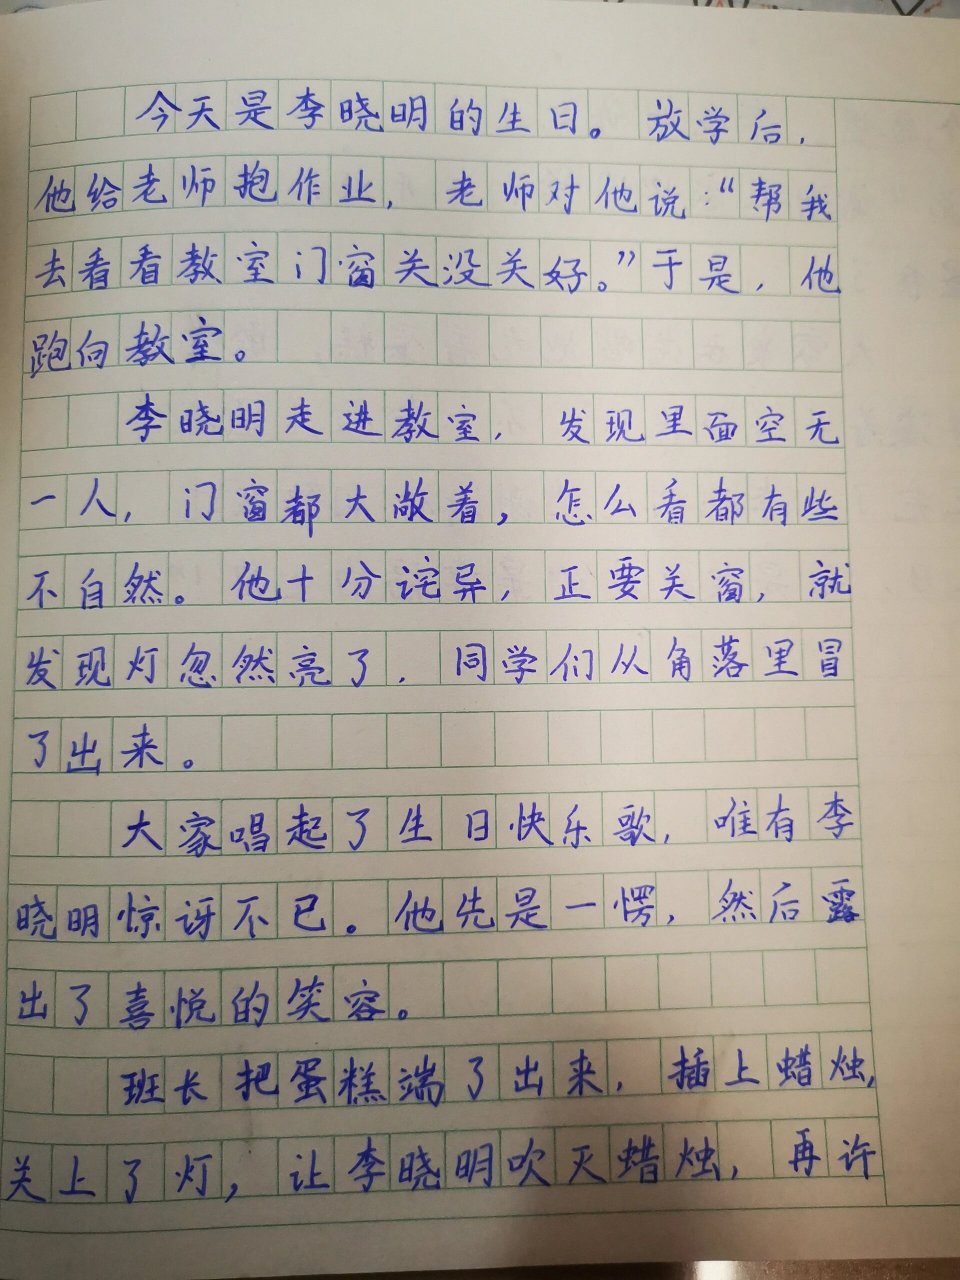 今天是李晓明的生日。放学后，
他给老师抱作业，老师对他说：“帮我
去看看教室门窗关没关好。”于是，他
跑向教室。
李晓明走进教室，发现里面空无
一人，门窗都大敞着，怎么看都有些
不自然。他十分诧异，正要关窗，就
发现灯忽然亮了，同学们从角落里冒
了出来。
大家唱起了生日快乐歌，唯有李
晓明惊讶不已。他先是一愣，然后露
出了喜悦的笑容。
班长把蛋糕端了出来，插上蜡烛，
关上了灯，让李晓明吹灭蜡烛，再许